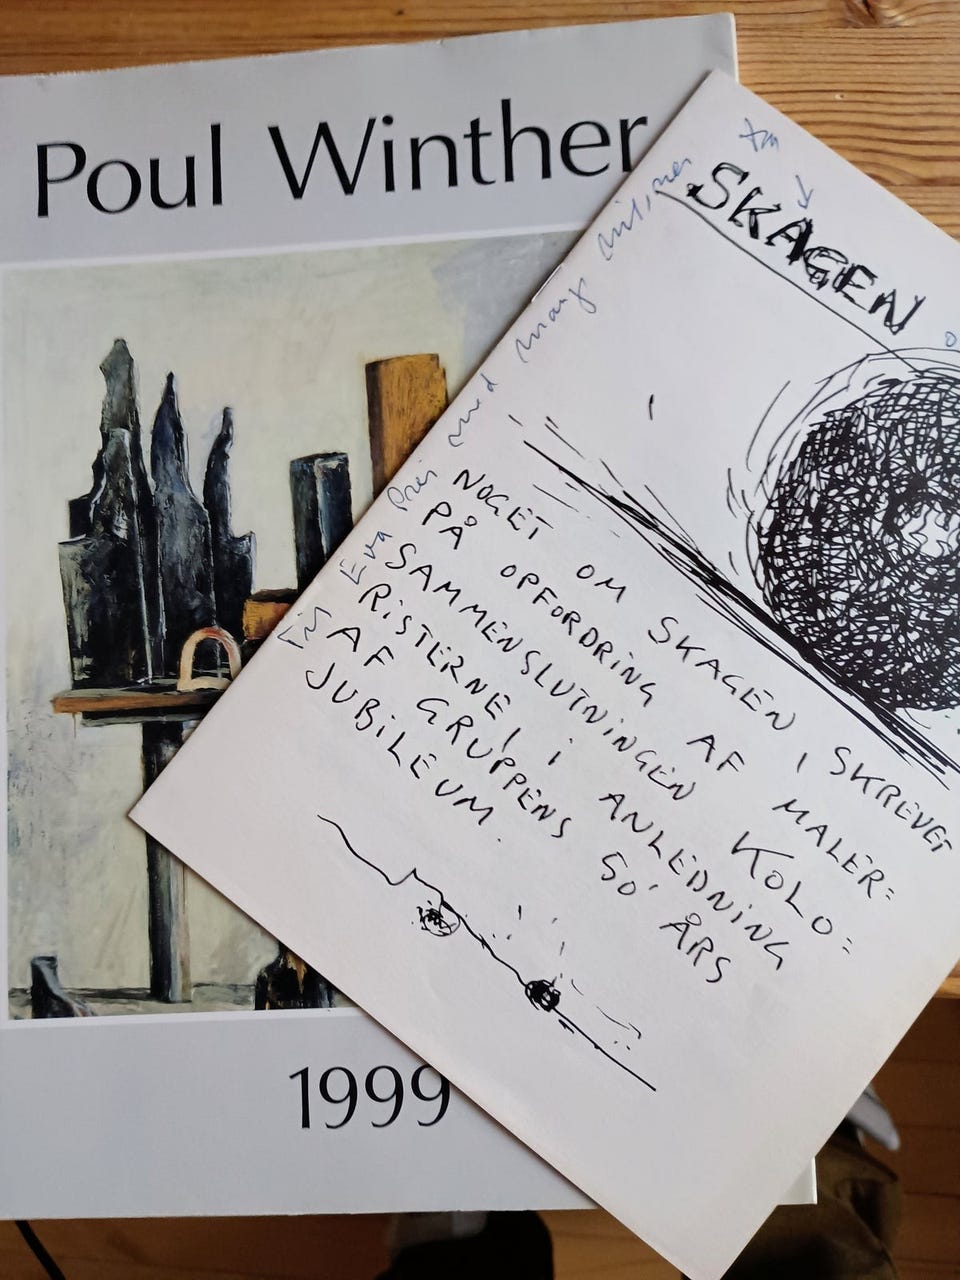 Poul Winther
1999
SKAGEN
NOGET OM SKAGEN, SKREVET
PÅ OPFORDRING AF MALER=
SAMMENSLUTNINGEN KOLO=
RISTERNE, I ANLEDNING
AF GRUPPENS 50' ÅRS
JUBILEUM.
Eva med mange